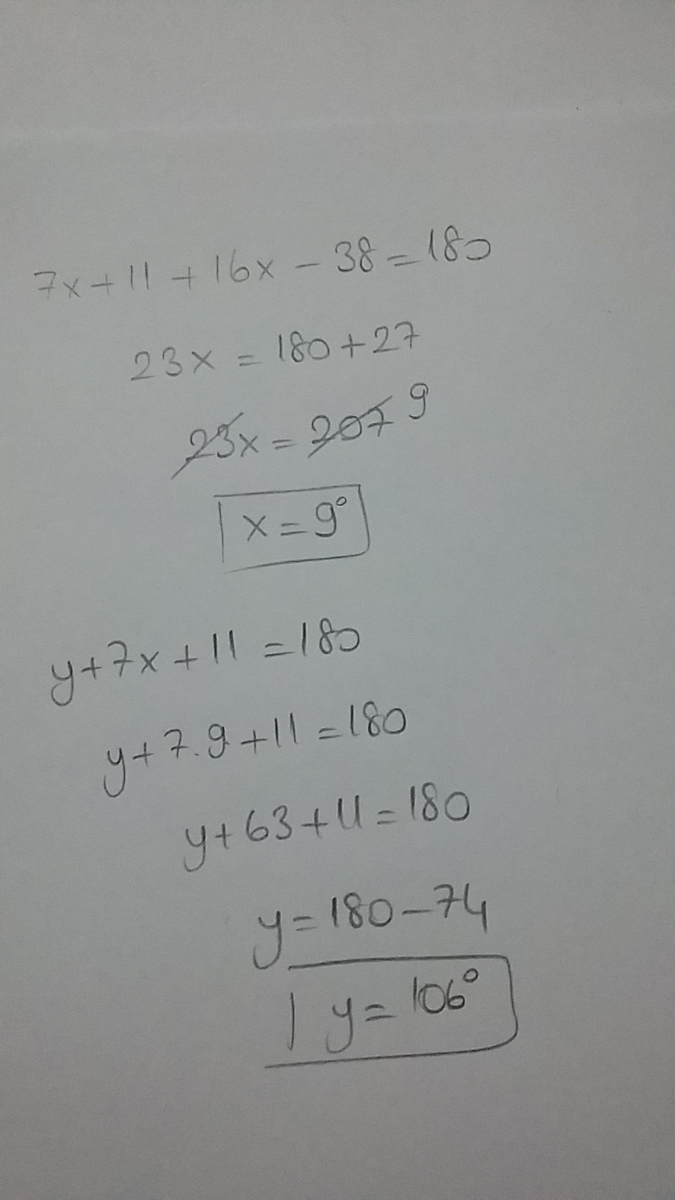 7x+11+16x-38=180
23x=180+27
23x=207 9
x=9°
y+7x+11=180
y+7.9+11=180
y+63+11=180
y=180-74
y=106°